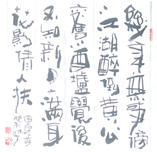 幾年無事傍
江湖醉倒黃公
舊酒壚覺後
不知新月上滿身
花影倩人扶